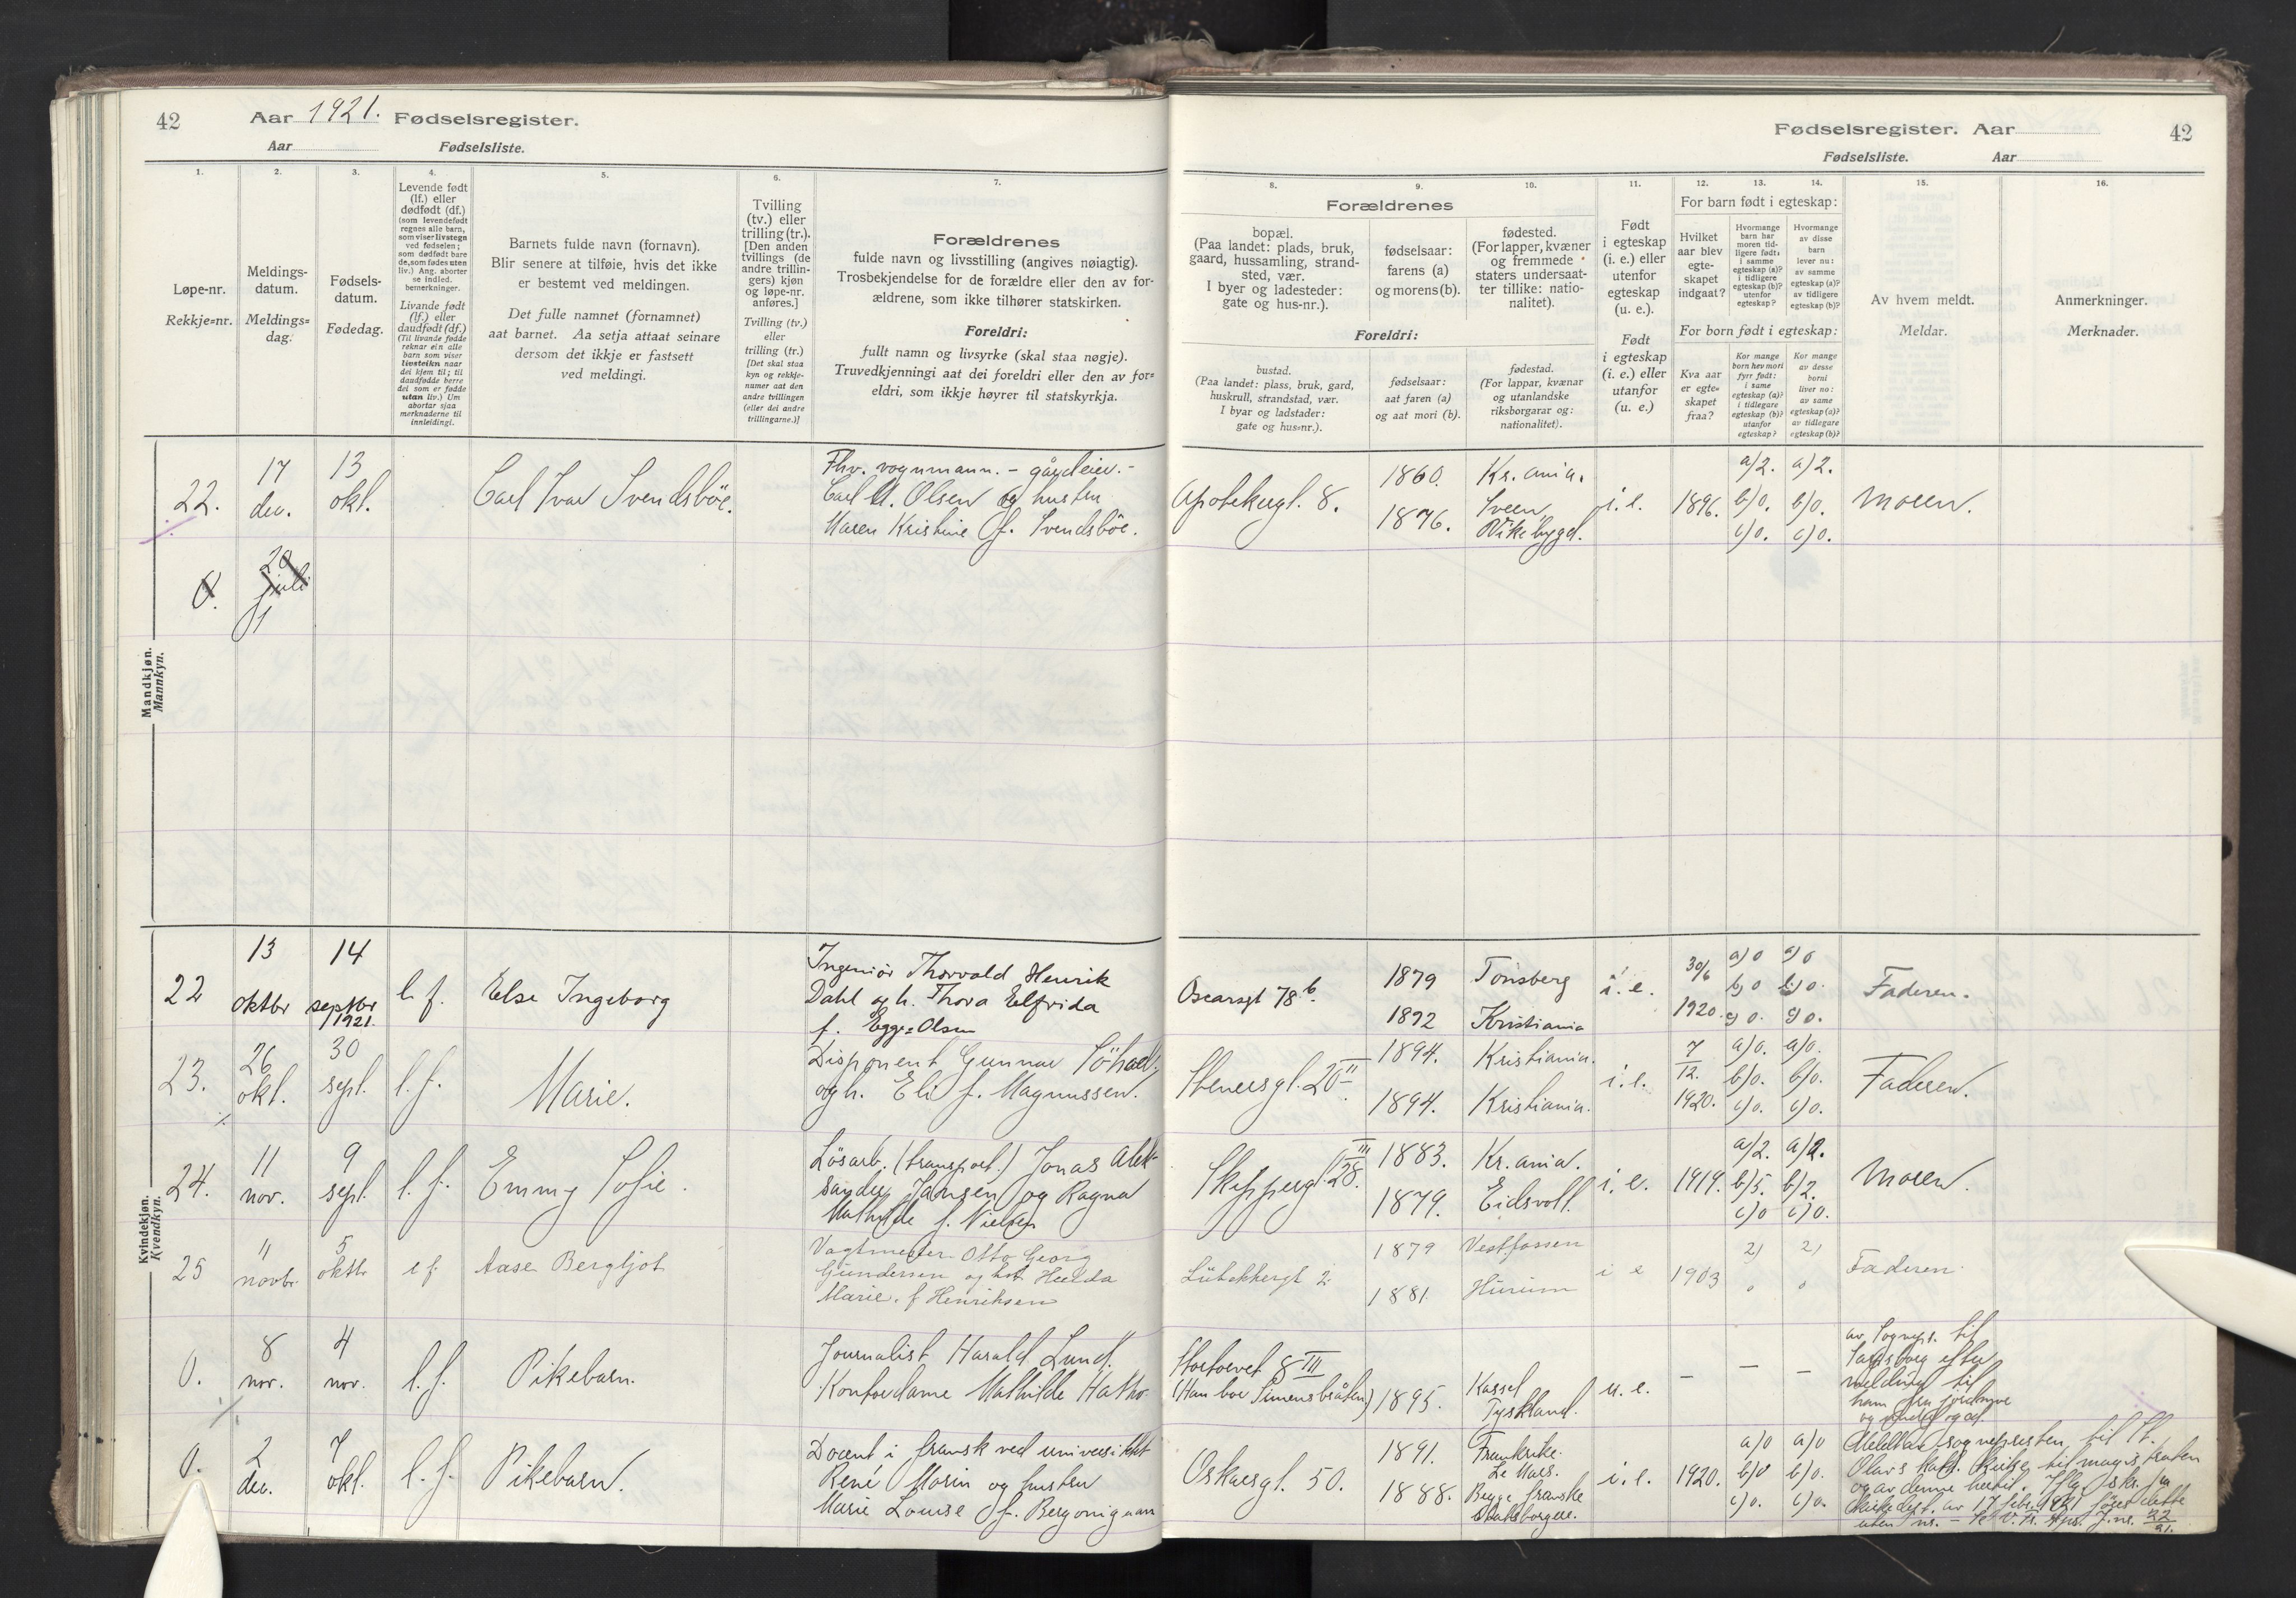 42
Aar 1921. Fødselsregister.
Aar Fødselsliste.
Fødselsregister. Aar
42
Fødselsliste. Aar
1.
2.
3.
4.
5.
6.
7.
Løpe-nr.
Rekkje=nr.
Meldings-
datum.
Meldings=
dag.
Fødsels-
datum.
Fødedag.
Levende født
(lf.) eller
dødfødt (df.)
(som levendefødt
regnes alle barn,
som viser livstegn
ved fødselen;
som dødfødt bare
de, som fødes uten
liv.) Ang. aborter
se indled.
bemerkninger.
Livande født
(lf.) eller
daudfødt (df.)
(Til livande fødde
reknar ein alle
barn som viser
livsteikn naar
dei kjem til; til
daudfødde berre
dei som er fødde
utan liv.) Um
abortar sjaa
merknaderne til
innleidingi.
Barnets fulde navn (fornavn).
Blir senere at tilføie, hvis det ikke
er bestemt ved meldingen.
Det fulle namnet (fornamnet)
aat barnet. Aa setja attaat seinare
dersom det ikkje er fastsett
ved meldingi.
Tvilling
(tv.) eller
trilling (tr.).
[Den anden
tvillings (de
andre trillin-
gers) kjøn
og løpe-nr.
anføres.]
Tvilling (tv.)
eller
trilling (tr.)
[Det skal staa
kyn og rekkje-
numer aat den
andre tvillingen
(eller dei andre
trillingarne.)]
Forældrenes
fulde navn og livsstilling (angives nøiagtig).
Trosbekjendelse for de forældre eller den av for-
ældrene, som ikke tilhører statskirken.
Foreldri:
fullt namn og livsyrke (skal staa nøgje).
Truvedkjenningi aat dei foreldri eller den av for=
eldri, som ikkje høyrer til statskyrkja.
8.
9.
10.
11.
12.
13.
14.
15.
16.
Forældrenes
bopæl.
(Paa landet: plads, bruk,
gaard, hussamling, strand-
sted, vær.
I byer og ladesteder:
gate og hus-nr.).
fødselsaar:
farens (a)
og morens (b).
fødested.
(For lapper, kvæner
og fremmede
staters undersaat-
ter tillike: natio-
nalitet).
Foreldri:
bustad.
(Paa landet: plass, bruk, gard,
huskrull, strandstad, vær.
I byar og ladstader:
gate og hus=nr.).
fødselsaar:
aat faren (a)
og aat mori (b).
fødestad.
(For lappar, kvænar
og utanlandske
riksborgarar og:
nationalitet).
Født
i egteskap
(i. e.) eller
utenfor
egteskap
(u. e.).
Født
i egteskap
(i. e.) eller
utanfor
(u. e.)
For barn født i egteskap:
Hvilket
aar blev
egte-
skapet
indgaat?
Hvormange
barn har
moren tid-
ligere født:
i samme
egteskap (a)?
i tidligere
egteskap (b)?
utenfor
egteskap?
Hvormange
av disse
barn
lever nu:
av samme
egteskap (a)?
av tidligere
egteskap (b)?
For born født i egteskap:
Kva aar
er egte=
skapet
fraa?
Kor mange
born hev mori
fyrr født:
i same
egteskap (a)?
i tidlegare
egteskap (b)?
utanfor
egteskap?
Kor mange
av desse
borni
liver no:
av same
egteskap (a)?
av tidlegare
egteskap (b)?
Av hvem meldt.
Meldar.
Anmerkninger.
Merknader.
Mandkjøn.
Mannkyn.
22. 17 dec. 13 okt. Carl Ivar Svendsböe.
Fhv. vognmann. – gårdeier. –
Carl M. Olsen og hustru
Maren Kristine f. Svendsböe.
Apotekergt. 8. 1860. 1876. Kr.ania. Sveen, Vikebygd. i. e. 1896. a) 2. b) 0. c) 0. a) 2. b) 0. c) 0. Moren.
0. 20 juli
Kvindekjøn.
Kvendkyn.
22 13 oktbr 14 septbr 1921. l. f. Else Ingeborg
Ingeniör Thorvald Henrik
Dahl og h. Thora Elfrida
f. Egge=Olsen
Oscarsgt 78 b. 1879 1892 Tönsberg Kristiania i. e. 30/6 1920. a) 0 b) 0 c) 0. a) 0 b) 0. c) 0. Faderen.
23. 26 okt. 30 sept. l. f. Marie.
Disponent Gunnar
og h. Eli f. Magnussen.
Stenersgt. 20 II 1894. 1894. Kristiania. Kristiania. i. e. 7/12. 1920. a) 0. b) 0. c) 0. a) 0. b) 0. c) 0. Faderen.
24. 11 nov. 9 sept. l. f. Emmy Sofie.
Lösarb. (transport.) Jonas Alek-
sander Jansen og Ragna
Mathilde f. Nielsen
Skippergt. 28. III 1883. 1879. Kr.ania. Eidsvoll. i. e. 1919. a) 2. b) 5. c) 0 a) 2. b) 2. c) 0. Moren.
25 11 novbr. 5 oktbr l f. Aase Bergljot
Vagtmester Otto Georg
Gundersen og hst. Hulda
Marie. f Henriksen
Lübekkergt 2 1879 1881 Vestfossen Hurum i e 1903 2) 0 2) 0 Faderen.
0. 8 nov. 4 nov. l. f. Pikebarn.
Journalist Harald Lund.
Kontordame Mathilde
Stortorvet 8 III
(Han bor Simensbråten) 1895. Kassel Tyskland. u. e. – – –
av Sogneps. til
Sarpsborg efter
melding til
ham fra jordmor
0. 2 dec. 7 okt. l. f. Pikebarn.
Docent i fransk ved universitetet
René Marin og hustru
Marie Louise f. Bergonignan
Oskarsgt. 50. 1891. 1888. Frankrike. Le Mans. Begge franske statsborgere. i. e. 1920. a) 0 b) 0 c) 0. a) 0 b) 0. c) 0.
Meldt av sognepresten til St.
Olavs kath. kirke til magistraten
og av denne hertil. Iflg. skr. fra
Kirkedept. av 17 febr. 1921 föres dette
uten nr. – J.nr. 22/21.